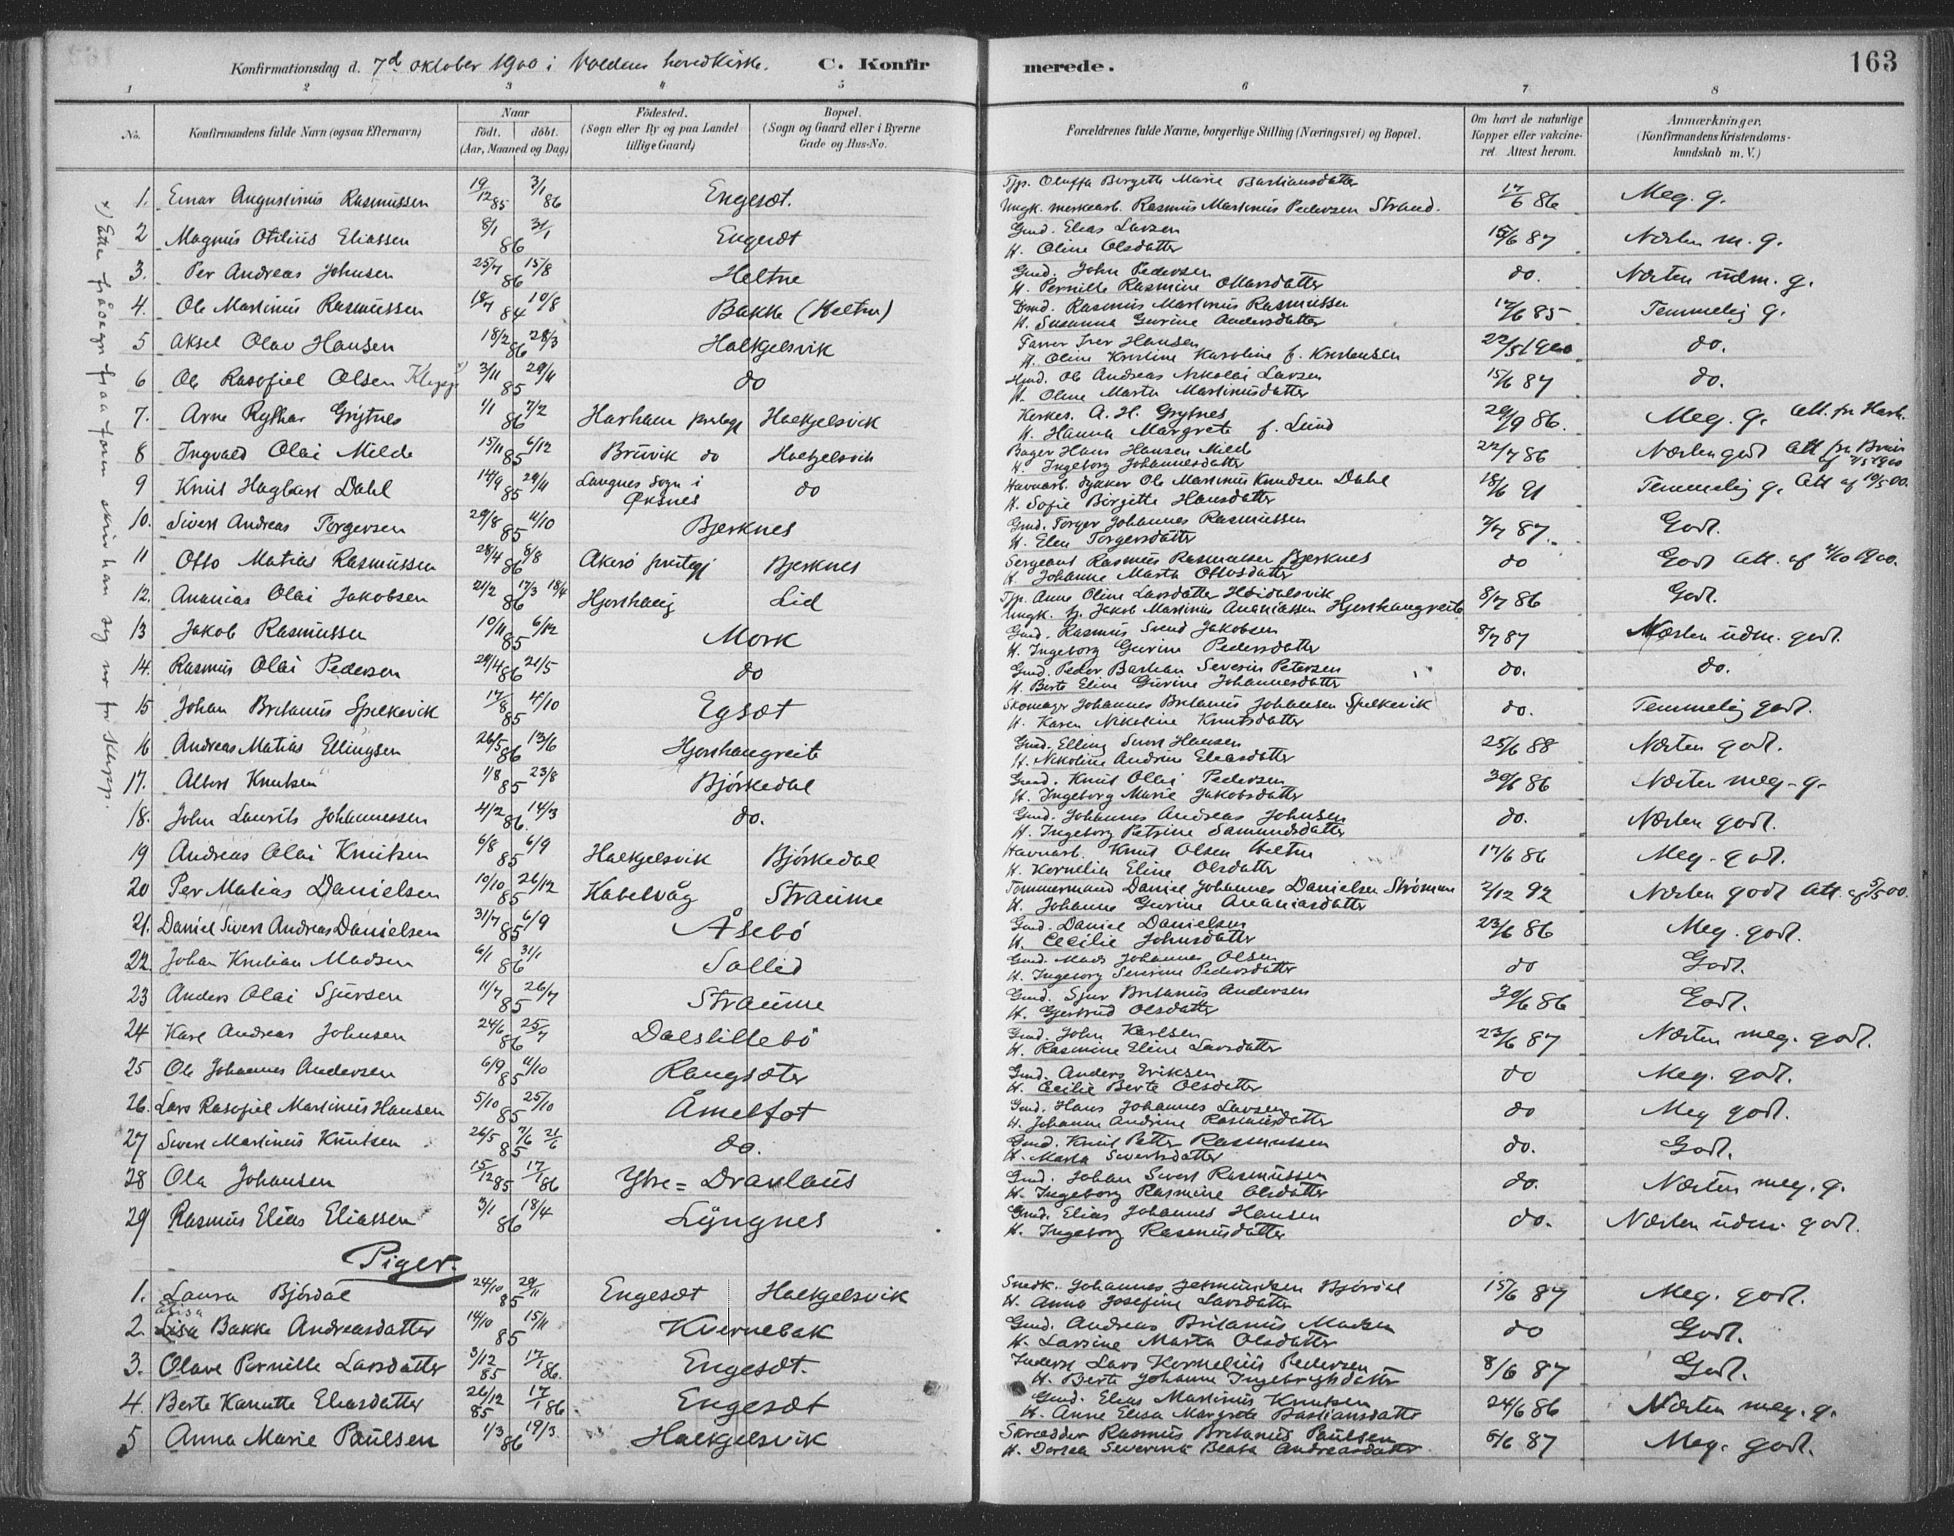 Konfirmationsdag d. 7d oktober 1900 i Voldens hovedkirke. C. Konfirmerede. 163
1 2 3 4 5 6 7 8
No. Konfirmandens fulde Navn (ogsaa Efternavn) Naar født. døbt. (Aar, Maaned og Dag) Fødested. (Sogn eller By og paa Landet tillige Gaard) Bopæl. (Sogn og Gaard eller i Byerne Gade og Hus-No. Forældrenes fulde Navne, borgerlige Stilling (Næringsvei) og Bopæl. Om havt de naturlige Kopper eller vaccineret. Attest herom. Anmærkninger. (Konfirmandens Kristendomskundskab m. V.)
1. Einar Augustinus Rasmussen 19/12 85 3/1 86 Engesæt. Pige Oluffa Bergette Marie Bastiansdatter
Ungk. Rasmus Martinus Pedersen Strand. 17/6 86 Meg. g.
2 Magnus Otilius Eliassen 8/1 31/1 86 Engesæt Gmd. Elias Larsen
H. Oline Olsdatter 15/6 87 Næsten m. g.
3. Per Andreas Johnsen 25/7 15/8 86 Heltne Gmd. John Pedersen
H. Pernille Rasmine Olsdatter do. Næsten udm. g.
4. Ole Martinus Rasmussen 18/7 10/8 84 Bakke (Heltne) Rasmus Martinus Rasmussen
H. Susanna Gurine Andersdatter 17/6 85 Temmelig g.
5 Aksel Olav Hansen 18/2 28/3 86 Halkjelsvik Iver Hansen
H. Oline Kristine Karoline f. Kristensen 22/5 1900 do.
6 Ole Rasofiel Olsen x) 3/11 29/11 85 do Ole Andreas Nikolai Larsen
H. Oline Marta Martinusdatter 15/6 87 do.
7. Arne Grytnes 1/1 7/2 86 Harham prstgj Halkjelsvik Kirkes. A. H. Grytnes
H. Hanna Margrete f. Lund 29/9 86. Meg. g. Att. fr. Harh.
8 Ingvald Olai Milde 15/11 6/12 85 Bruvik do Halkjelsvik Bager Hans Hansen Milde
H. Ingeborg Johannesdatter 22/7 86 Næsten godt Att. fr. Bruv.
9 Knut Hagbart Dahl 14/9 29/11 85 Langnes sogn i Øksnes do Havnarb. dykker Ole Martinus Knudsen Dahl
H. Sofie Birgitte Hansdatter 18/6 91 Temmelig g. Att af 19/5 00.
10. Sivert Andreas Torgersen 29/8 11/10 85 Bjerknes Gmd. Torger Johannes Rasmussen
H. Elen Torgersdatter 7/7 87. Godt.
11 Otto Matias Rasmussen 28/4 8/8 86 Akerø prstgj Bjerknes Sergeant Rasmus Rasmussen Bjerknes
H. Johanne Marta Ottosdatter do Godt Att. af 4/10 1900.
12. Ananias Olai Jakobsen 21/2 17/3 18/4 86 Hjorthaug Lid Pige Anne Oline Larsdatter Høidalsvik
Ungk. Jakob Martinus Ananiassen Hjorthaugreite 8/7 86 Godt.
13 Jakob Rasmussen 10/11 6/12 85 Mork Gmd. Rasmus Svend Jakobsen
H. Ingeborg Gurine Pedersdatter 8/7 87 Næsten udm. godt.
14. Rasmus Olai Pedersen 29/4 21/5 86 do Gmd. Peder Bastian Severin Petersen
H. Berte Eline Gurine Johannesdatter do. do.
15 Johan Britanus Spilkevik 17/8 4/10 85 Egsæt Skomager Johannes Britanus Johansen Spelkevik
H. Karen Nikoline Knutsdatter do. Temmelig godt.
16 Andreas Matias Ellingsen 26/5 13/6 86 Hjorthaugreite Gmd. Elling Sivert Hansen
H. Nikoline Andrine Eliasdatter 25/6 88 Næsten godt.
17. Albert Knutsen 1/8 23/8 85 Bjørkedal Gmd. Knut Olai Pedersen
H. Ingeborg Marie Jakobsdatter 30/6 86 Næsten meg. g.
18. John Laurits Johannessen 4/2 14/3 86. do. Gmd. Johannes Andreas Johnsen
H. Ingeborg Petrine Samundsdatter do. Næsten godt.
19 Andreas Olai Knutsen 6/8 6/9 85 Halkjelsvik Bjørkedal Havnarb. Knut Olsen Heltne
H. Kornelia Eline Olsdatter 17/6 86 Meg. godt.
20 Per Matias Danielsen 10/10 26/12 85 Kabelvåg Straume Tømmermand Daniel Johannes Danielsen Strømme
H. Johanne Gurine Ananiasdatter 2/12 92 Næsten godt Att. af 5/5 00.
21. Daniel Sivert Andreas Danielsen 31/7 6/9 85 Åsebø Gmd. Daniel Danielsen
H. Cecilie Johnsdatter 23/6 86 Meg. godt.
22. Johan Kristian Madsen 6/1 31/1 86 Sollid Gmd. Mads Johannes Olsen
H. Ingeborg Severine Pedersdatter do Godt.
23 Anders Olai Sjursen 11/7 26/7 85 Straume Gmd. Sjur Britanus Andersen
H. Gjertrud Olsdatter 30/6 86 Godt.
24 Karl Andreas Johnsen 24/6 25/7 86 Dalslillebø Gmd. John Karlsen
H. Rasmine Eline Larsdatter 23/6 87 Næsten meg. godt.
25 Ole Johannes Andersen 6/9 11/10 85 Rangsæter Gmd. Anders Eriksen
H. Cecilie Berte Olsdatter do Meg. godt.
26. Lars Rasofiel Martinus Hansen 5/10 25/10 85 Åmelfot Gmd. Hans Johannes Larsen
H. Johanne Andrine Rasmusdatter do Meg godt.
27 Sivert Martinus Knutsen 26/5 7/6 21/6 85 do. Gmd. Knut Petter Rasmussen
H. Marta Sivertsdatter do. Godt.
28 Ola Johansen 15/12 85 17/1 86 Ytre-Dravlaus Gmd. Johan Sivert Rasmussen
H. Ingeborg Rasmine Olsdatter do. Næsten meg. g.
29 Rasmus Elias Eliassen 3/1 18/4 86 Lyngnes Gmd. Elias Johannes Hansen
H. Ingeborg Rasmusdatter do. Næsten udm. godt.
Piger.
1. Laura Bjørdal 24/10 29/11 85 Engesæt Halkjelsvik Snedk. Johannes Jetmundsen Bjørdal
H. Anna Josefine Larsdatter 15/6 87 Meg. godt.
2. Elisa Bakke Andreasdatter 14/10 15/11 85 Kvernebak Gmd. Andreas Britanus Madsen
H. Larsine Marta Olsdatter do Godt.
3. Olave Pernille Larsdatter 3/12 85 17/1 86. Engesæt. Inderst Lars Kornelius Pedersen
H. Berte Johanne Ingebrigtsdatter 8/6 87 Godt.
4. Berte Kanutte Eliasdatter 26/12 85 17/1 86 Engesæt Gmd. Elias Martinus Knutsen
H. Anne Elisa Margrete Bastiansdatter 24/6 86 Næsten meg. g.
5 Anna Marie Paulsen 1/3 19/3 86 Halkjelsvik Skrædder Rasmus Britanus Paulsen
H. Dorsea Severine Beata Andreasdatter 5/6 87 Meg. godt.
x) Ette fråsegn fraa faren skriv han seg no for Klepp.